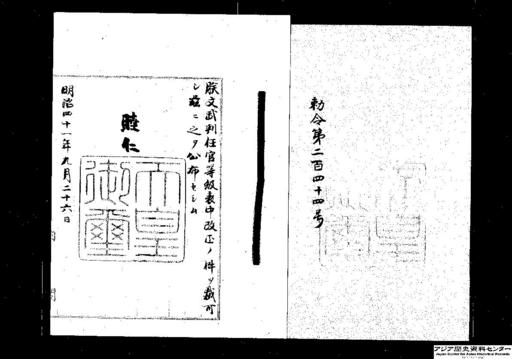 朕文武判任官等級表中改正ノ件ヲ裁可
シ茲ニ之ヲ公布セシム
睦仁
天皇
御璽
明治四十一年九月二十六日
勅令第二百四十四号
アジア歴史資料センター
Japan Center for Asian Historical Records